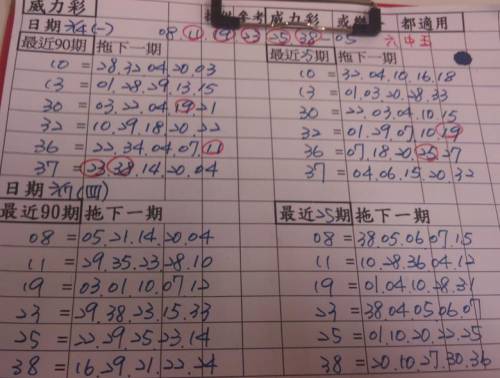 威力彩 參考 威力彩 或樂 都適用
日期 (一) 08 11 19 23 25 38 05 六中五
最近90期 拖下一期 最近25期 拖下一期
10 = 28.32.04.20.03 10 = 32.04.10.16.18
13 = 01.28.29.13.15 13 = 01.03.20.28.33
30 = 03.22.04.19.21 30 = 22.03.04.10.15
32 = 10.29.18.20.22 32 = 01.29.07.10.19
36 = 22.34.04.07.11 36 = 07.18.20.25.27
37 = 23.38.14.20.04 37 = 04.06.15.20.32
日期 (四)
最近90期 拖下一期 最近25期 拖下一期
08 = 05.21.14.20.04 08 = 38.05.06.07.15
11 = 29.35.23.28.10 11 = 10.28.36.04.12
19 = 03.01.10.07.12 19 = 01.04.10.28.31
23 = 29.38.23.15.33 23 = 38.04.05.06.07
25 = 22.29.25.23.14 25 = 01.10.20.22.25
38 = 16.29.21.22.24 38 = 20.10.27.30.36